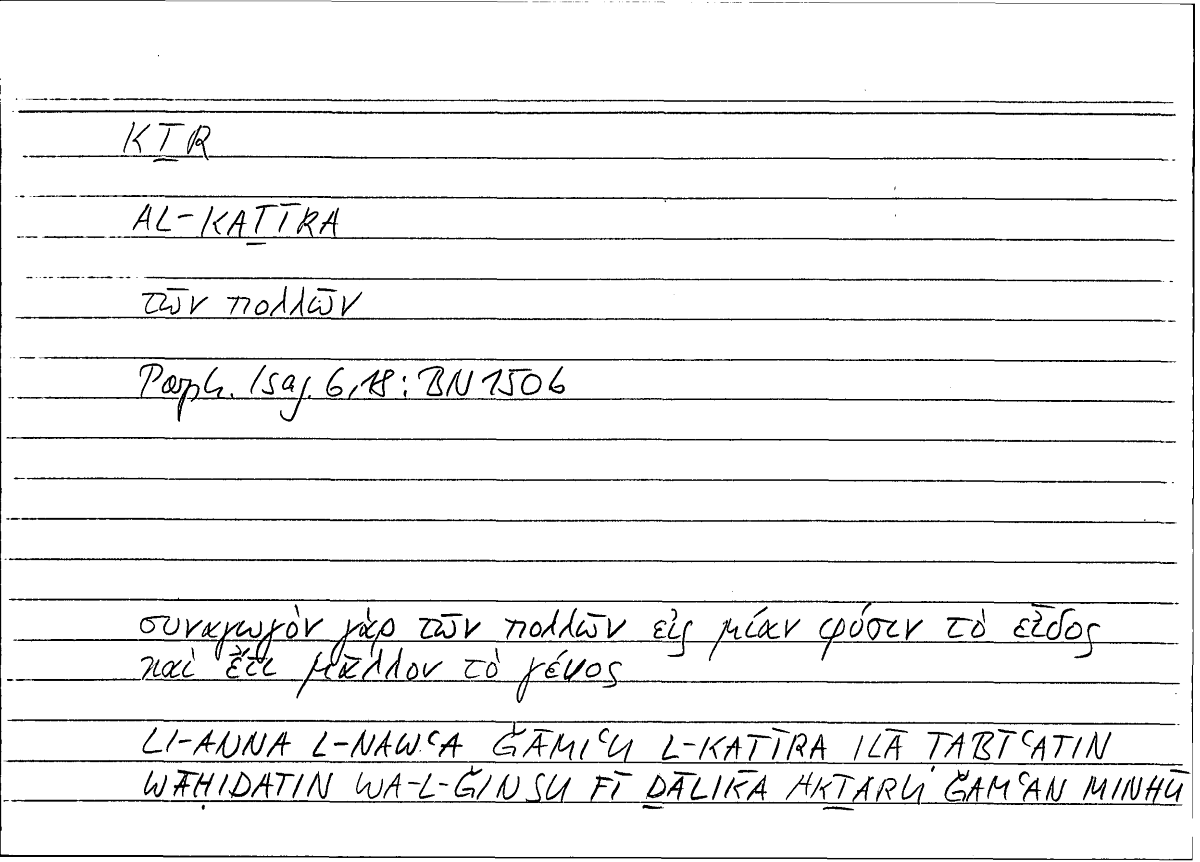 KṮR
AL-KAṮĪRA
τῶν πολλῶν
Porph. Isag. 6,18: BN 150b
συναγωγὸν γὰρ τῶν πολλῶν εἰς μίαν φύσιν τὸ εἶδος
καὶ ἔτι μᾶλλον τὸ γένος
LI-ANNA L-NAWʿA ǦĀMIʿU L-KATĪRA ILĀ ṬABĪʿATIN
WĀḤIDATIN WA-L-ǦINSU FĪ ḎĀLIKA AKṮARU ǦAMʿAN MINHŪ